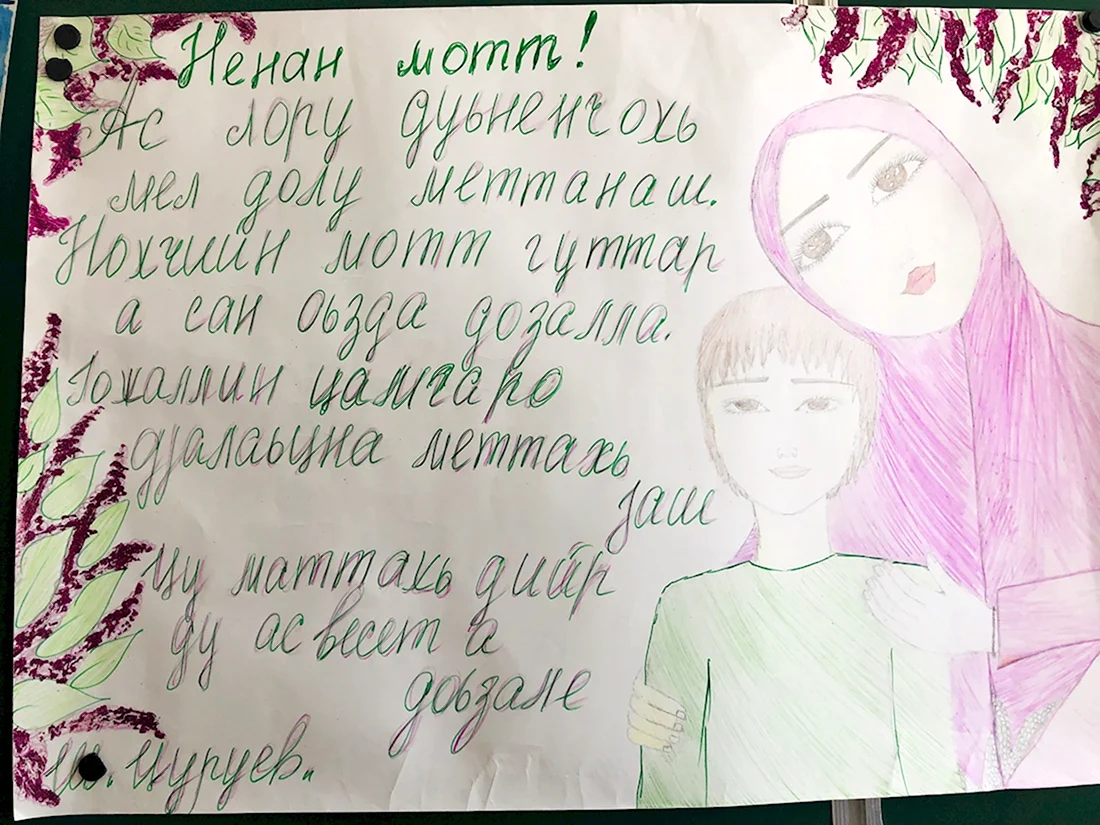 Ненан мотт!
Ас лору дуьненчохь
мел долу меттанаш.
Нохчийн мотт гуттар
а сан оьзда дозалла.
Іожаллин цамгаро
дІалаьцна меттахь
Іаш
Цу маттахь дийр
ду ас весет а
доьзале
Ш. Цуруев.